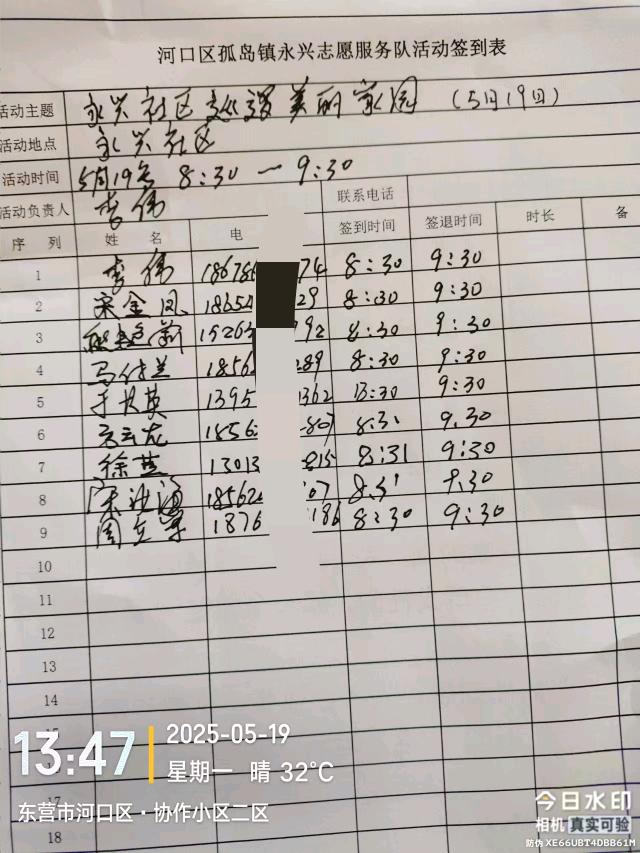 河口区孤岛镇永兴志愿服务队活动签到表
活动主题 永兴社区 美丽家园 (5月19日)
活动地点 永兴社区
活动时间 5月19号 8:30 — 9:30
活动负责人 李伟 联系电话
序 列 姓 名 电 签到时间 签退时间 时长 备
1 李伟 18678 74 8:30 9:30
2 宋金凤 1865 29 8:30 9:30
3 15263 92 8:30 9:30
4 马付兰 1856 289 8:30 9:30
5 于大英 1395 1362 9:30
6 1856 807 8:31 9.30
7 徐燕 13013 815 8:31 9:30
8 18562 07 8:31 9.30
9 1876 186 8:30 9:30
10
11
12
13
14
17
18
13:47
2025-05-19
星期一 晴 32℃
东营市河口区·协作小区二区
今日水印
相机 真实可验
防伪 XE66UBT4DBB61M